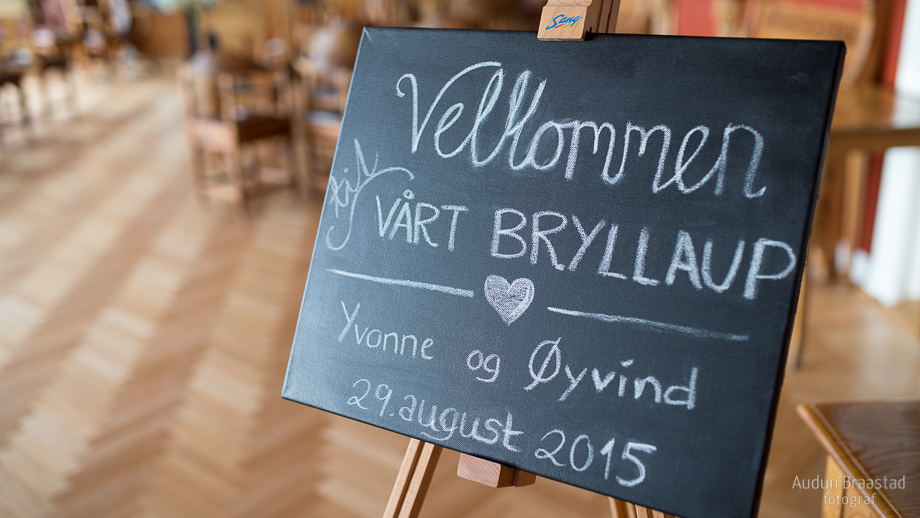 Song
Velkommen
til
VÅRT BRYLLAUP
Yvonne og Øyvind
29. august 2015
Audun Braastad
fotograf